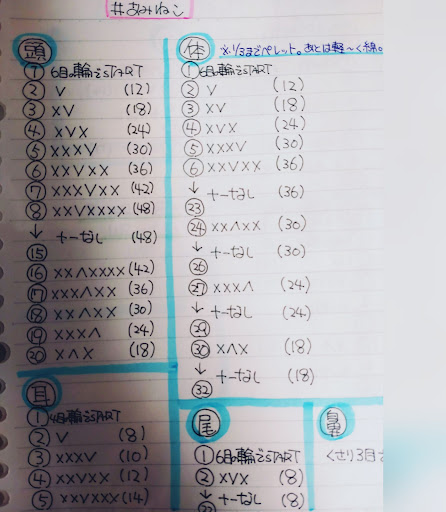 #あみねこ
頭
① 6目の輪でSTART
② V (12)
③ XV (18)
④ XVX (24)
⑤ XXXV (30)
⑥ XXVXX (36)
⑦ XXXVXX (42)
⑧ XXVXXXX (48)
↓ +-なし (48)
⑮
⑯ XXΛXXXX (42)
⑰ XXXΛXX (36)
⑱ XXΛXX (30)
⑲ XXXΛ (24)
⑳ XΛX (18)
体
※1/3までペレット。あとは軽〜く綿。
① 6目の輪でSTART
② V (12)
③ XV (18)
④ XVX (24)
⑤ XXXV (30)
⑥ XXVXX (36)
↓ +-なし (36)
㉓
㉔ XXΛXX (30)
↓ +-なし (30)
㉖
㉗ XXXΛ (24)
↓ +-なし (24)
㉙
㉚ XΛX (18)
↓ +-なし (18)
㉜
耳
① 4目の輪でSTART
② V (8)
③ XXXV (10)
④ XXVXX (12)
⑤ XXVXXX (14)
尾
① 6目の輪でSTART
② XVX (8)
↓ +-なし (8)
鼻
くさり3目